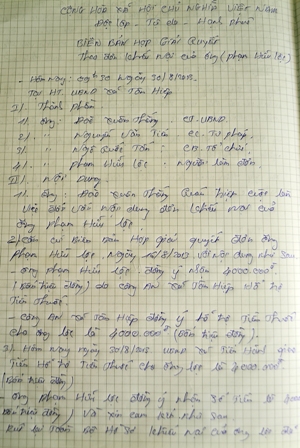 CỘNG HÒA XÃ HỘI CHỦ NGHĨA VIỆT NAM
Độc lập - Tự do - Hạnh phúc
BIÊN BẢN HỌP GIẢI QUYẾT
Theo đơn khiếu nại của ông (phạm Hữu lộc)
- Hôm nay: 30 ngày 30/8/2013.
Tại HT. UBND xã Tân Hiệp
I/. Thành phần.
1/. ông: Đoàn Xuân Thông . CT. UBND.
2/. " Nguyễn Văn Tiến . CC. Tư pháp.
3/. " Ngô Quốc Tuấn : CB. Tổ chức.
4/. " Phạm Hữu lộc . Người làm đơn.
II/. Nội Dung.
1/. ông: Đoàn Xuân Thông
việc đối với nội dung đơn khiếu nại của
ông phạm Hữu lộc.
2/. Căn cứ Biên bản Họp giải quyết đơn ông
phạm Hữu lộc. Ngày 12/8/2013 với nội dung như sau
- ông phạm Hữu lộc. đồng ý nhận 4000.000đ
(bốn triệu đồng) do công an xã Tân Hiệp hỗ trợ
Tiền Thuốc.
- công an xã Tân Hiệp đồng ý hỗ trợ Tiền Thuốc
cho ông lộc là 4000.000đ (bốn triệu đồng).
3/. Hôm nay ngày 30/8/2013. UBND xã Tiến Hành giao
Tiền Hỗ trợ Tiền Thuốc cho ông lộc là 4.000.000đ
(bốn triệu đồng)
ông phạm Hữu lộc đồng ý nhận số Tiền là 4000.000đ
bốn triệu đồng) Và xin cam kết như sau
Toàn bộ Hồ sơ khiếu nại của ông